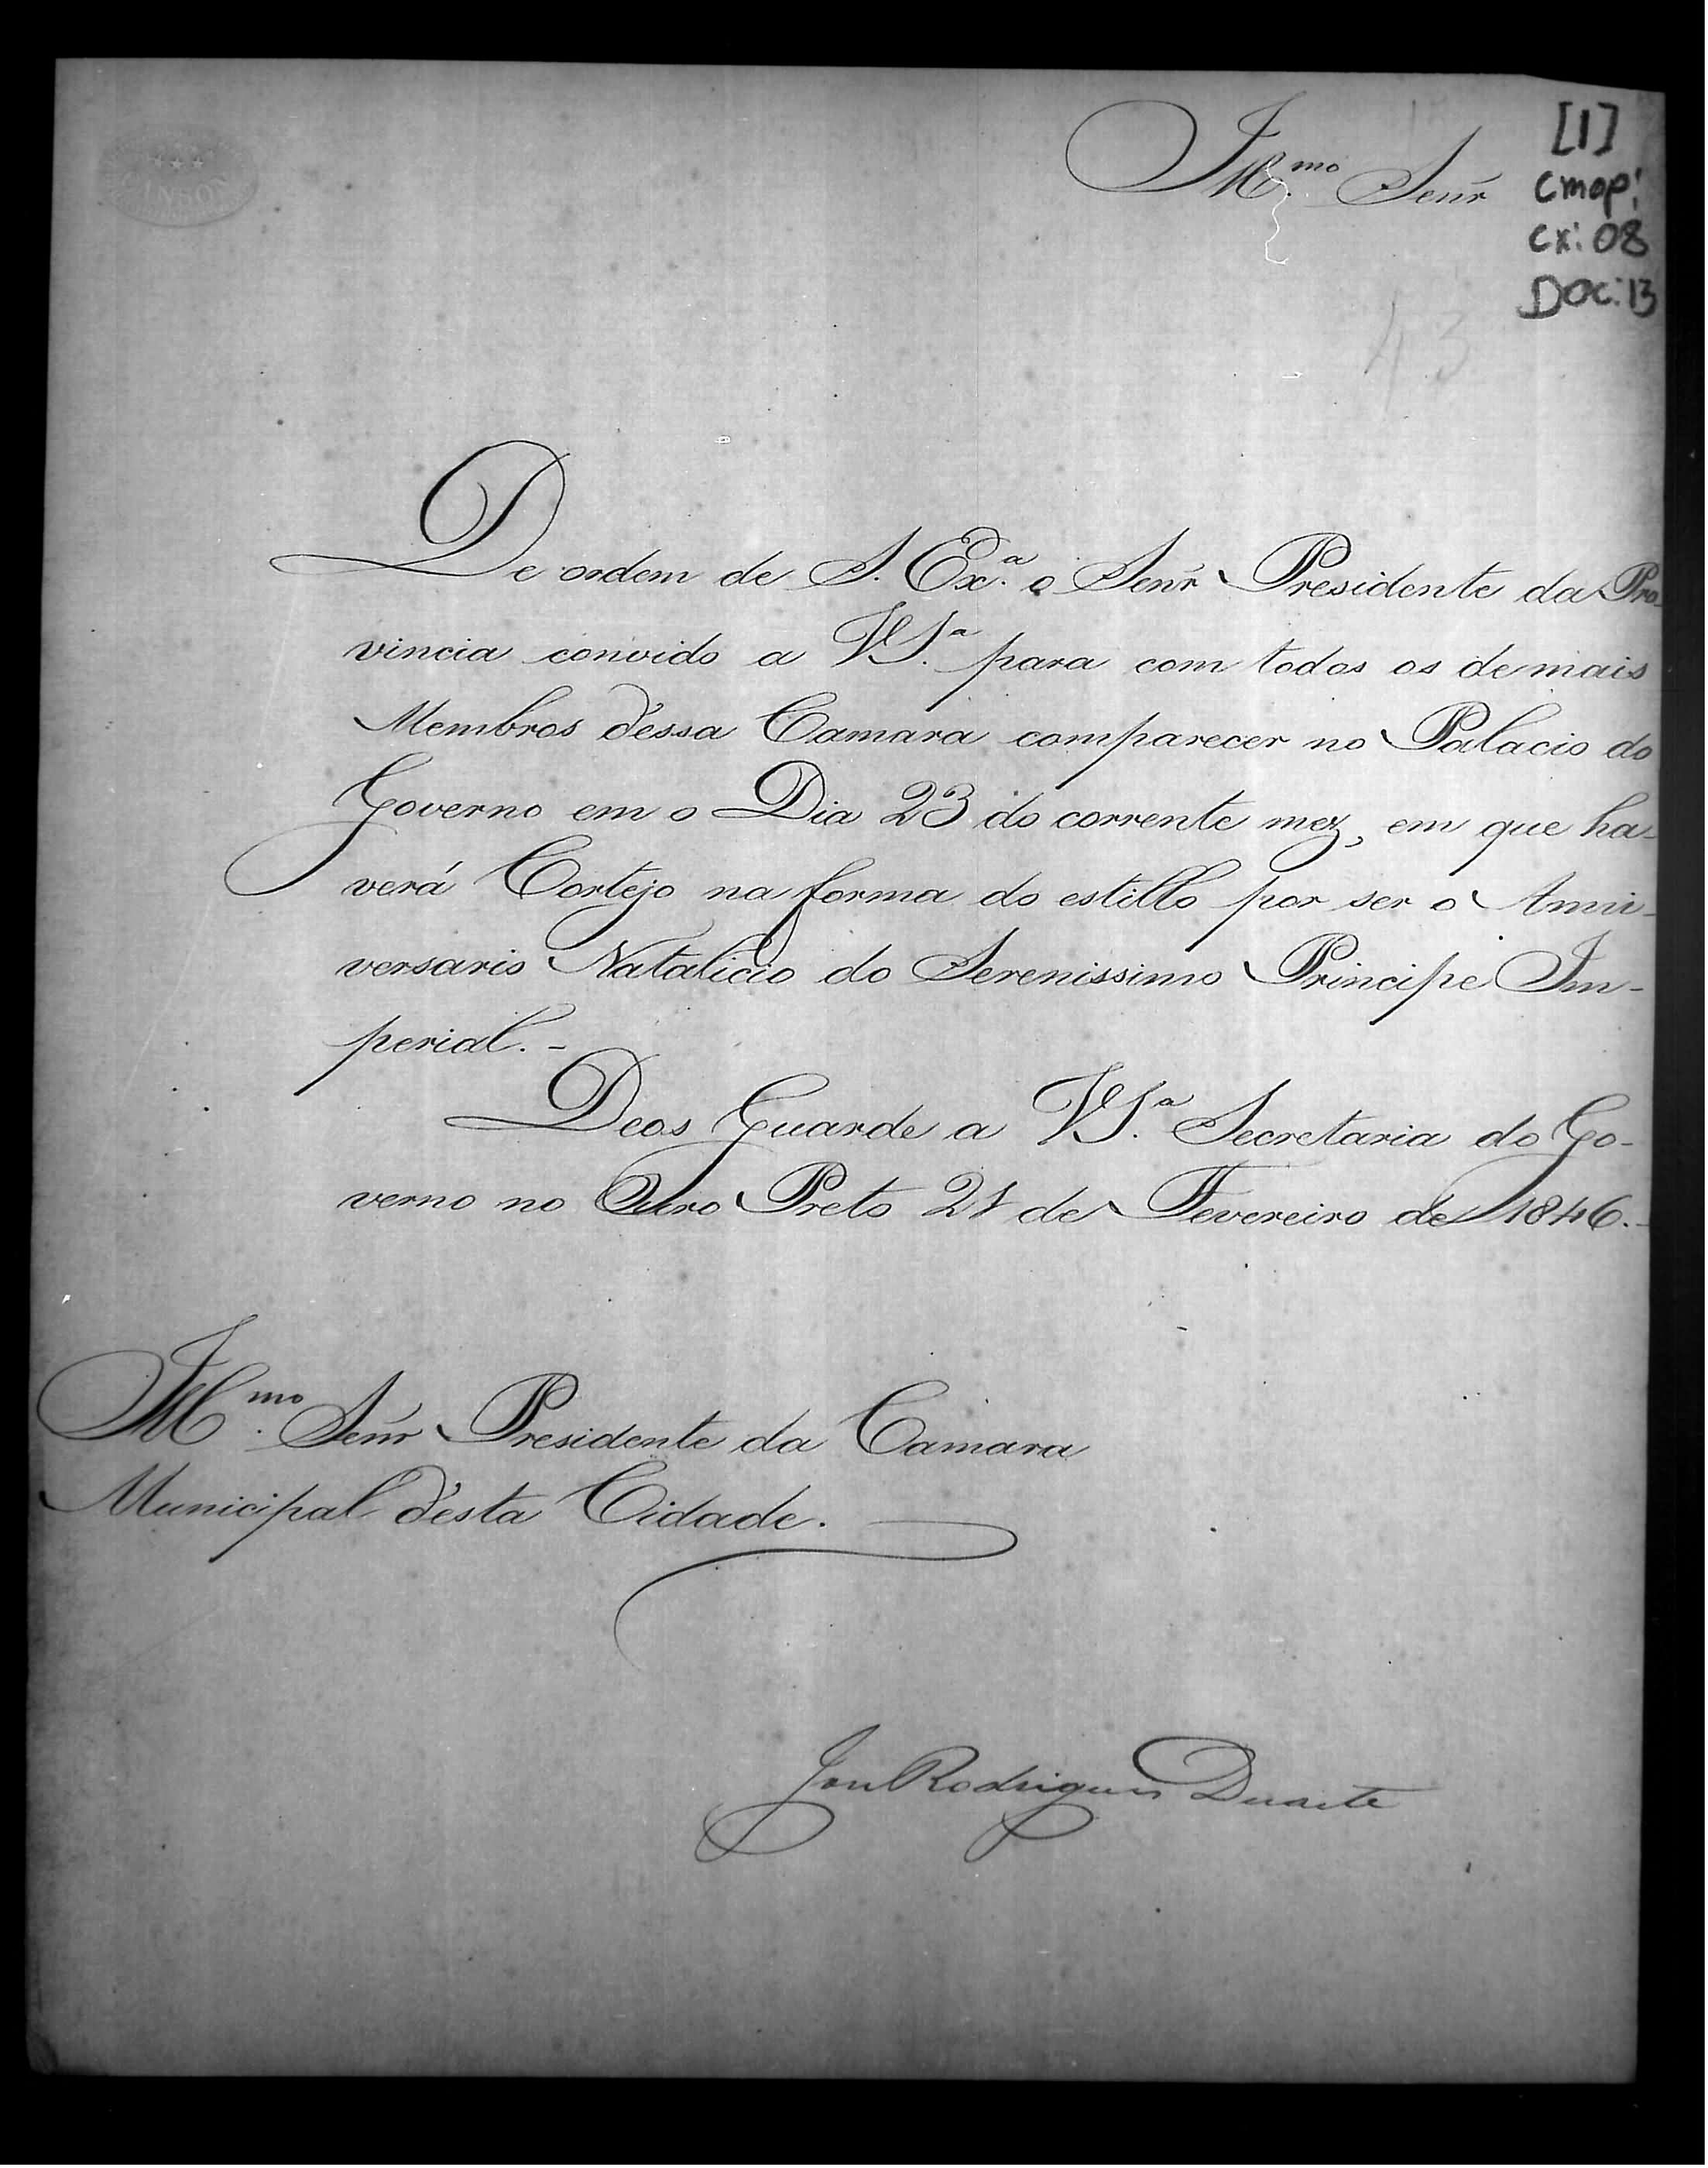 Illmo. Senr
[1]
Cmop:
Cx: 08
Doc: 13
43
De ordem de S. Exa. o Senr Presidente da Pro-
vincia convido a VSa. para com todos os de mais
Membros d'essa Camara comparecer no Palacio do
Governo em o Dia 23 do corrente mez, em que ha-
verá Cortejo na forma do estillo por ser o Anni-
versario Natalicio do Serenissimo Principe Im-
perial. -
Deos Guarde a VSa. Secretaria do Go-
verno no Ouro Preto 21 de Fevereiro de 1846. -
Illmo. Senr Presidente da Camara
Municipal d'esta Cidade.
Rodrigues Duarte